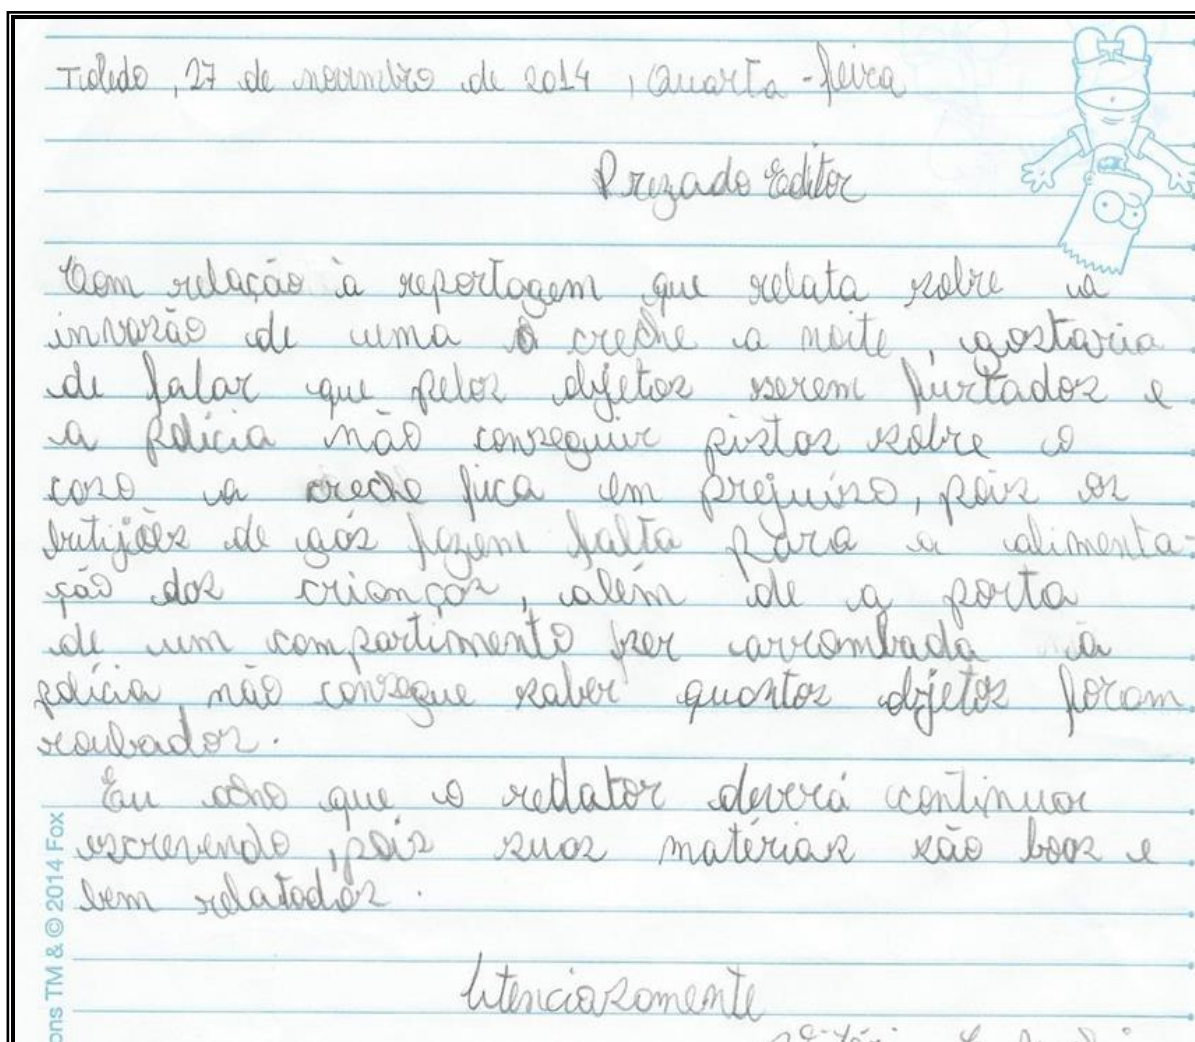 Toledo, 27 de novembro de 2014, Quarta-feira
Prezado Editor
Com relação à reportagem que relata sobre a
invasão de uma creche a noite, gostaria
de falar que pelos objetos serem furtados e
a polícia não conseguir pistas sobre o
caso a creche fica em prejuíso, pois os
butijões de gás fazem falta para a alimenta-
ção das crianças, além de a porta
de um compartimento ser arrombada a
polícia não consegue saber quantos objetos foram
roubados.
Eu acho que o redator deverá continuar
escrevendo, pois suas matérias são boas e
bem relatadas.
Atenciosamente
ons TM & © 2014 Fox